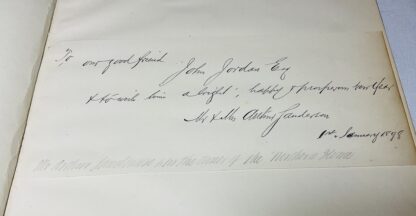 To our good friend John Jordan Esq
& to wish him a bright, happy & prosperous New Year
Mr & Mrs Arthur Sanderson
1st January 1898
Mr Arthur Sanderson was the owner of the